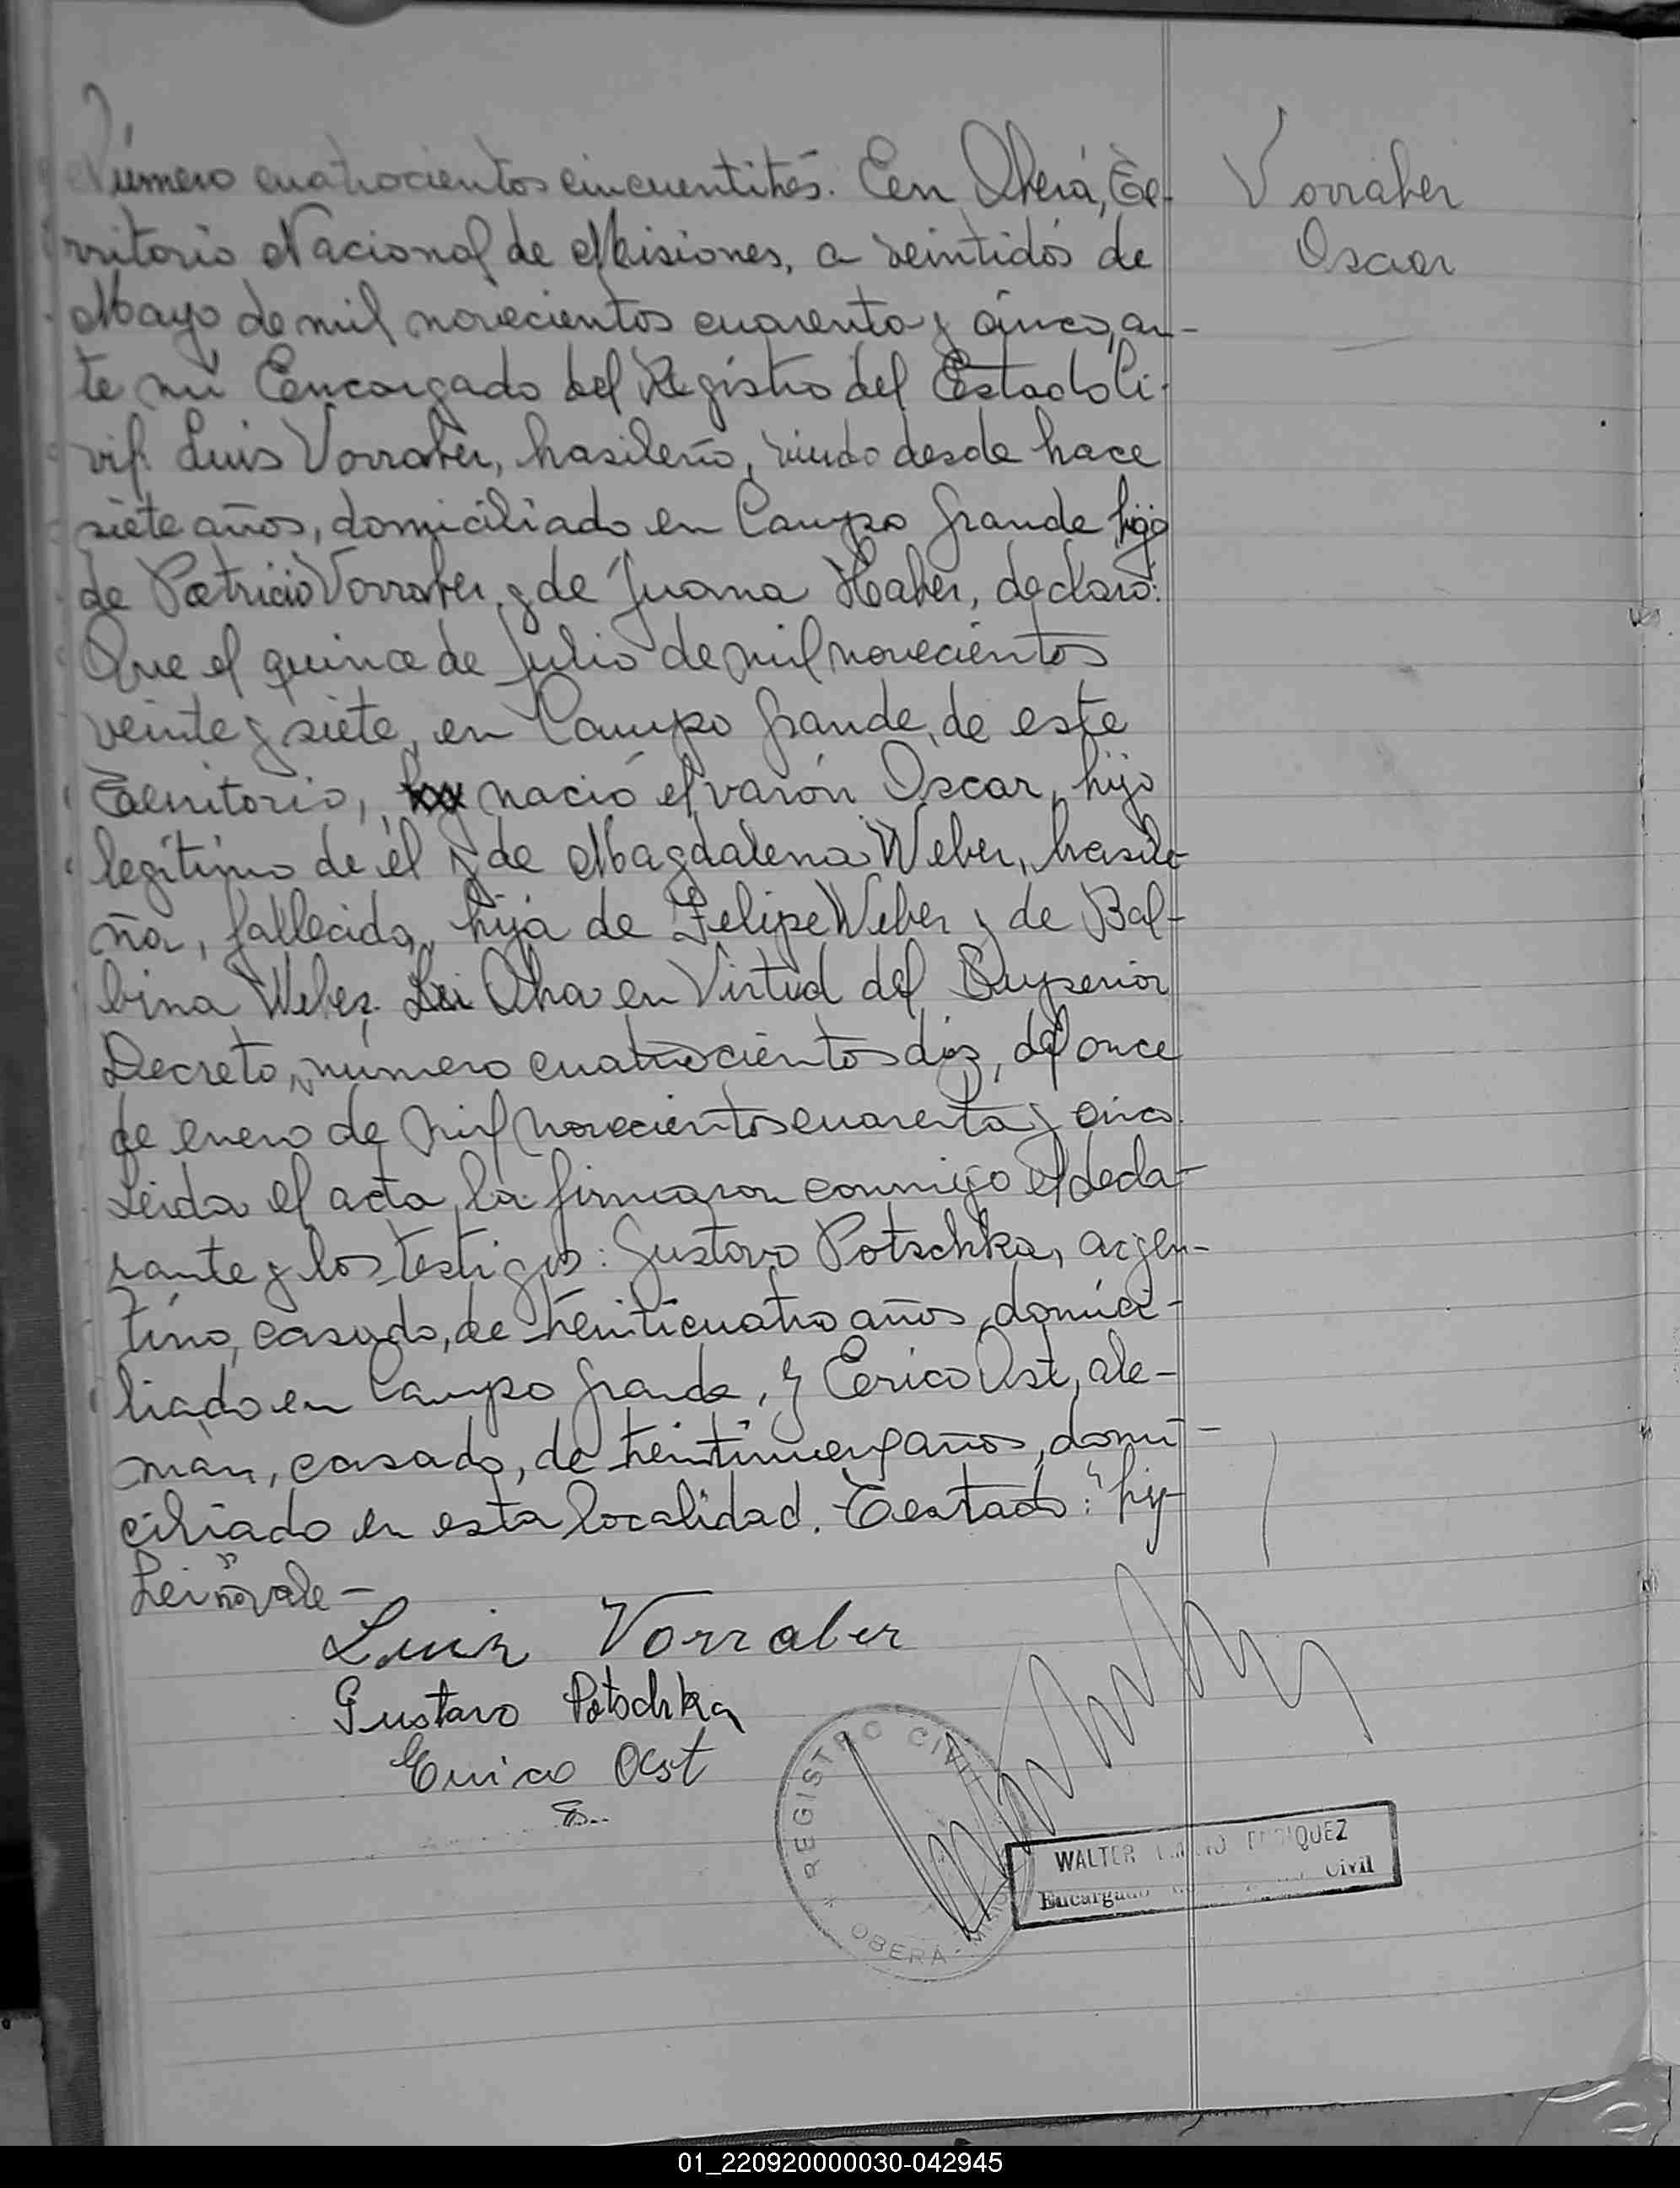 Número cuatrocientos cincuentitrés. En Oberá, Te-
rritorio Nacional de Misiones, a veintidós de
Mayo de mil novecientos cuarenta y cinco, an-
te mí Encargado del Registro del Estado Ci-
vil Luis Vorraber, brasileño, viudo desde hace
siete años, domiciliado en Campo Grande hijo
de Patricio Vorraber y de Juana Haber, declaró:
Que el quince de Julio de mil novecientos
veinte y siete, en Campo Grande, de este
Territorio, nació el varón Oscar, hijo
legítimo de él y de Magdalena Weber, brasile-
ña, fallecida, hija de Felipe Weber y de Bal-
bina Weber. Obra en Virtud del Superior
Decreto, número cuatrocientos diez, del once
de enero de mil novecientos cuarenta y cinco.
Leida el acta, la firmaron conmigo el decla-
rante y los testigos: Gustavo Potschka, argen-
tino, casado, de treinticuatro años, domici-
liado en Campo Grande, y Erico Ost, ale-
mán, casado, de treintinueve años, domi-
ciliado en esta localidad. Testado: "hij-
Lei" no vale -
Vorraber
Oscar
Luiz Vorraber
Gustavo Potschka
Erico Ost
REGISTRO CIVIL
OBERÁ - MISIO
WALTER
Encargado Civil
01_220920000030-042945